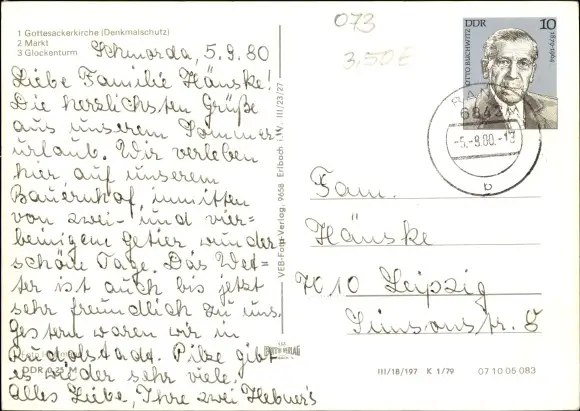 1 Gottesackerkirche (Denkmalschutz)
2 Markt
3 Glockenturm
Schmorda, 5.9.80
Liebe Familie Hänske!
Die herzlichsten Grüße
aus unserem Sommer
urlaub. Wir verleben
hier auf unserem
Bauernhof, inmitten
von zwei- und vier=
beinigem Getier wunder
schöne Tage. Das Wet=
ter ist auch bis jetzt
sehr freundlich zu uns.
Gestern waren wir in
Rudolstadt. Pilze gibt
es wieder sehr viele.
Alles Liebe, Ihre zwei Hebner's
DDR 0,25 M
VEB-Foto-Verlag, 9658 Erlbach i. V. III/23/27
073
3,50 €
DDR 10
OTTO BUCHWITZ 1879-1964
-5.-9.80.-1
b
Fam.
Hänske
7010 Leipzig
Simsonstr. 8
III/18/197 K 1/79 07 10 05 083